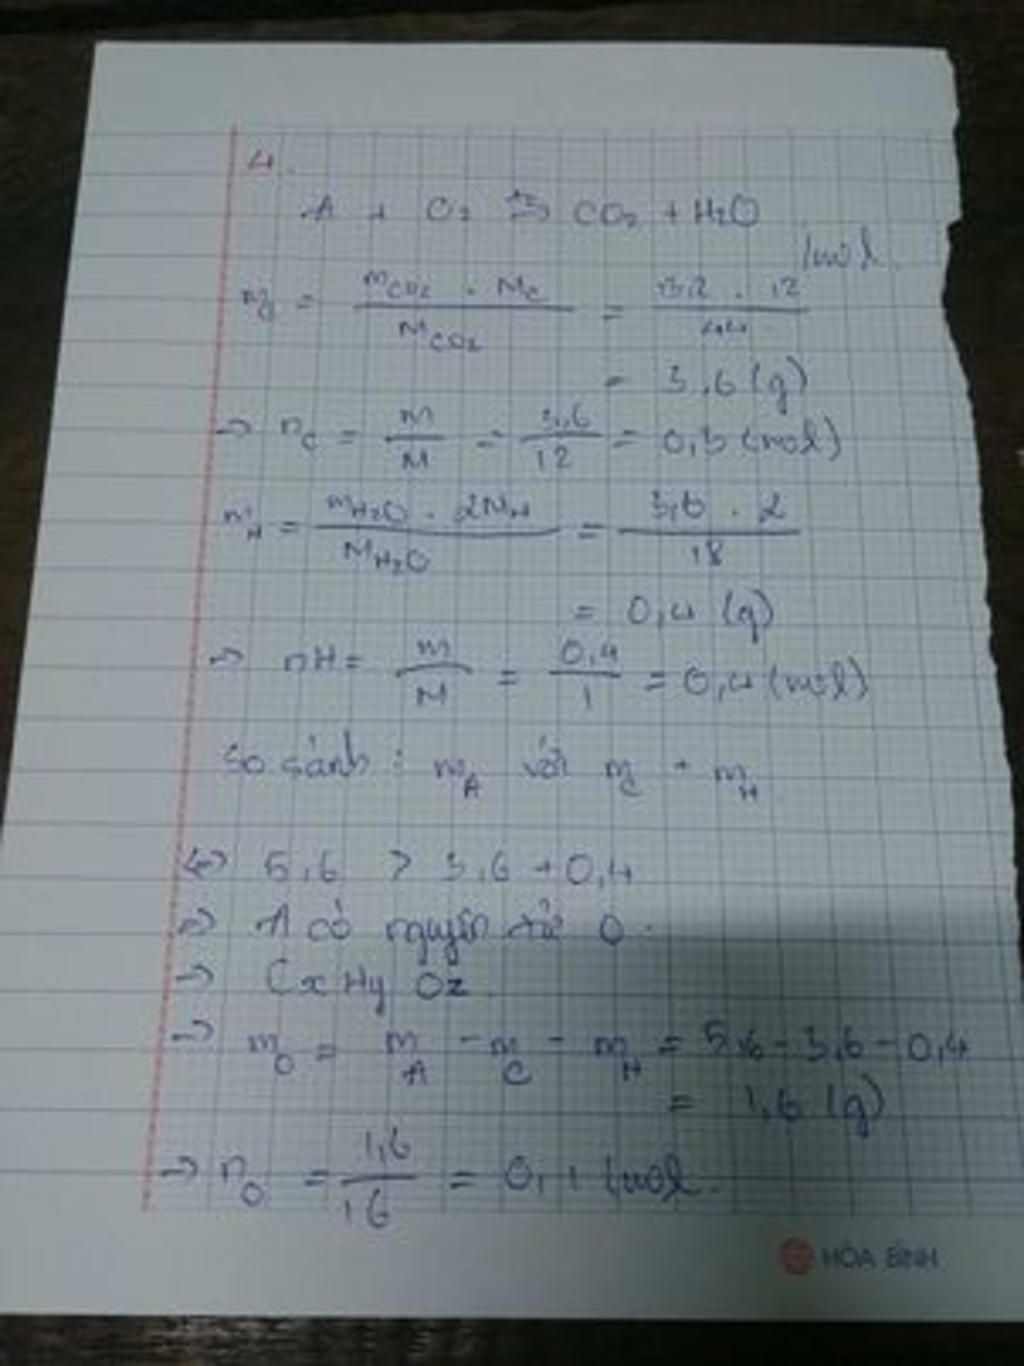 4.
A + O2 t°→ CO2 + H2O
/mol.
mC = mCO2 . MC / MCO2 = 13,2 . 12 / 44
= 3,6 (g)
→ nC = m / M = 3,6 / 12 = 0,3 (mol)
mH = mH2O . 2MH / MH2O = 3,6 . 2 / 18
= 0,4 (g)
→ nH = m / M = 0,4 / 1 = 0,4 (mol)
So sánh : mA với mC + mH
⇔ 5,6 > 3,6 + 0,4
⇒ A có nguyên tử O.
→ CxHyOz
→ mO = mA - mC - mH = 5,6 - 3,6 - 0,4
= 1,6 (g)
→ nO = 1,6 / 16 = 0,1 (mol.
HÒA BÌNH